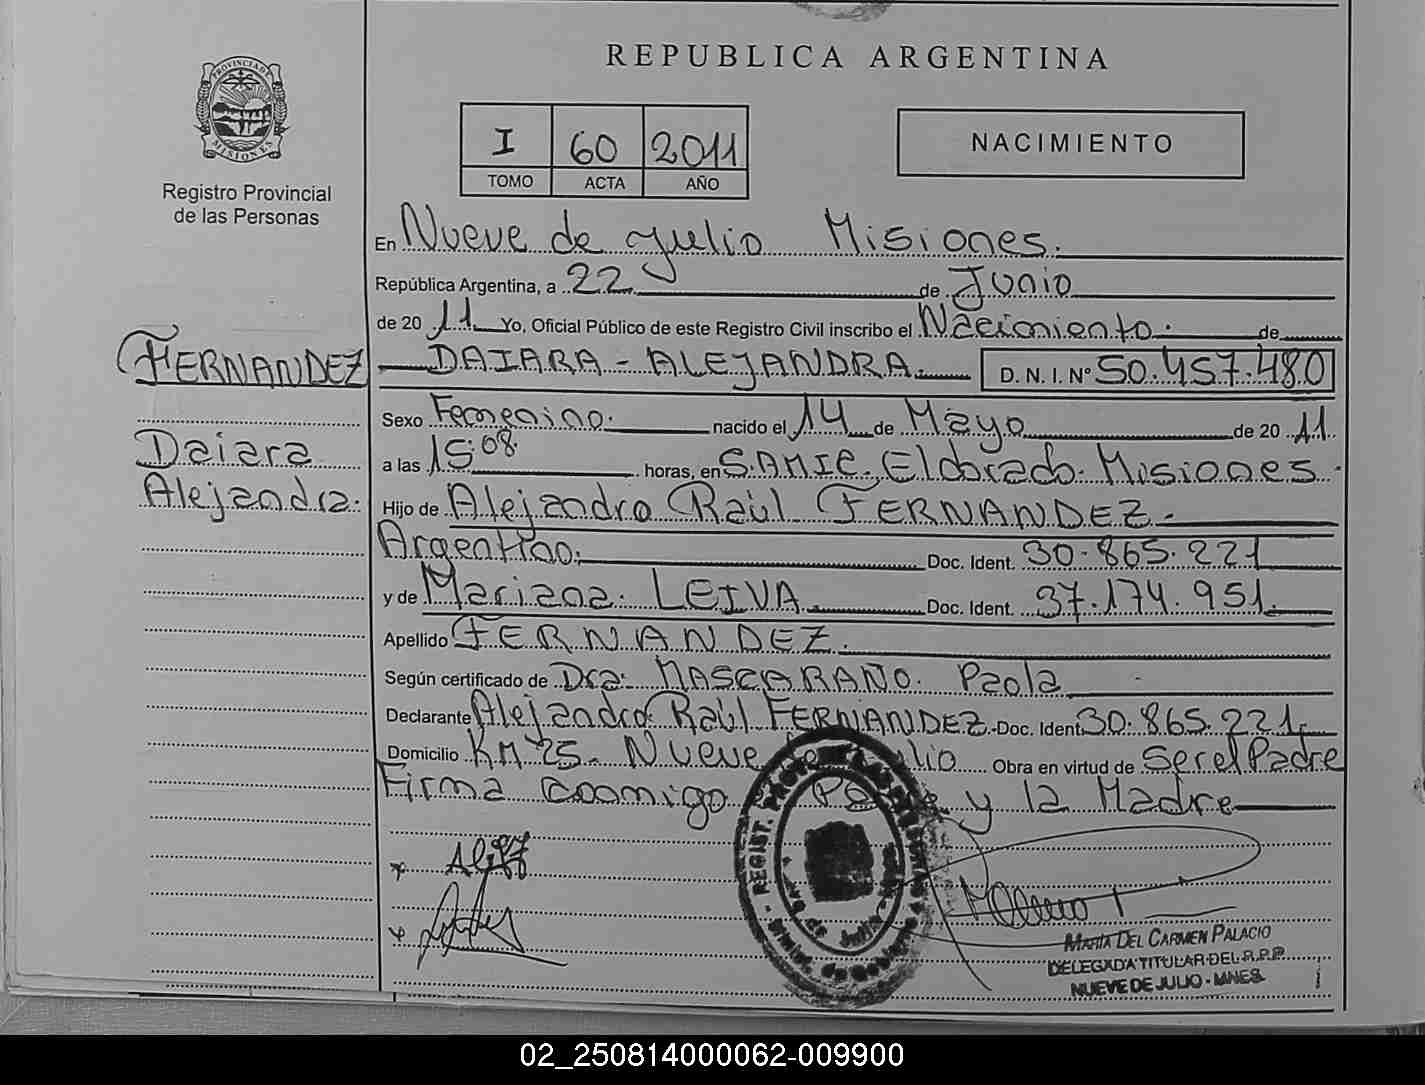 REPUBLICA ARGENTINA
PROVINCIA DE MISIONES
Registro Provincial
de las Personas
I 60 2011
TOMO ACTA AÑO
NACIMIENTO
En Nueve de Julio Misiones.
República Argentina, a 22 de Junio
de 20 11 Yo, Oficial Público de este Registro Civil inscribo el Nacimiento. de
FERNANDEZ
DAIARA - ALEJANDRA. D. N. I. Nº 50.457.480
Sexo Femenino. nacido el 14 de Mayo de 20 11.
Daiara
Alejandra.
a las 15:08 horas, en S.AMIC. Eldorado. Misiones.
Hijo de Alejandro Raúl FERNANDEZ.
Argentino. Doc. Ident. 30.865.221
y de Mariana. LEIVA. Doc. Ident. 37.174.951.
Apellido FERNANDEZ.
Según certificado de Dra. MASCARAÑO. Paola
Declarante Alejandro Raúl FERNANDEZ. Doc. Ident 30.865.221.
Domicilio KM 25. Nueve de Julio Obra en virtud de Ser el Padre
Firma conmigo Padre y la Madre
MARIA DEL CARMEN PALACIO
DELEGADA TITULAR DEL R.P.P.
NUEVE DE JULIO - MNES.
02_250814000062-009900